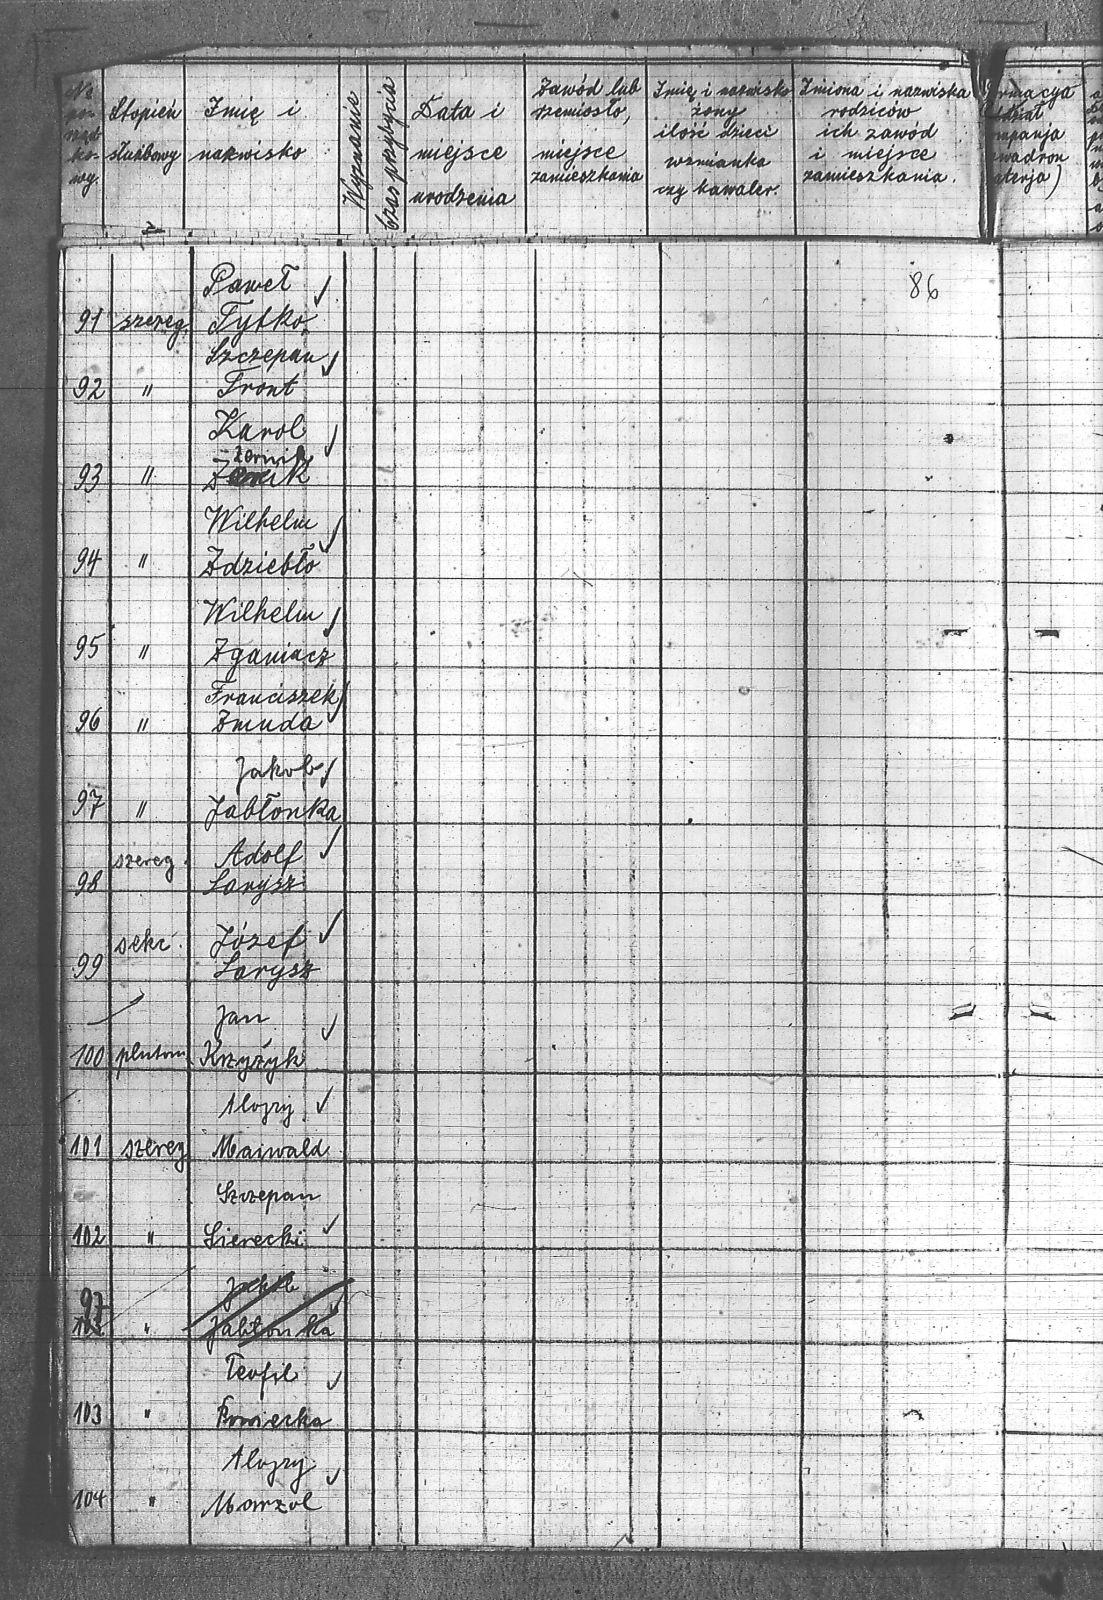 No porządkowy.
Stopień służbowy
Imię i nazwisko
Wyznanie
Czas przybycia
Data i miejsce urodzenia
Zawód lub rzemiosło, miejsce zamieszkania
Imię i nazwisko żony ilość dzieci wzmianka czy kawaler.
Imiona i nazwiska rodziców ich zawód i miejsce zamieszkania.
rmacya
dział
mpanja
wadron
terja)
86
Paweł
91 szereg. Tytko
Szczepan
92 " Front
Karol
Żernik
93 "
Wilhelm
94 " Zdziebło
Wilhelm
95 " Zganiacz
Franciszek
96 " Zmuda
Jakob
97 " Jabłonka
szereg. Adolf
98 Larysz
sekc. Józef
99 Larysz
Jan
100 pluton Krzyżyk
Alojzy
101 szereg Maiwald
Szczepan
102 " Sierecki
Jakob
97 " Jabłonka
Teofil
103 "
Alojzy
104 " Marzol